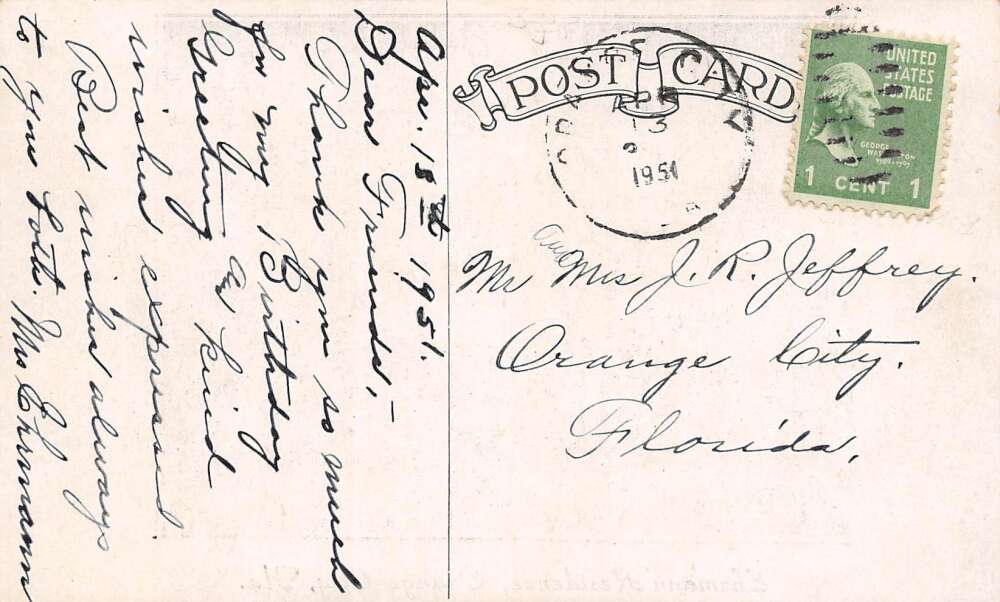 Apr. 13th 1951.
Dear Friends,-
Thank you so much
for my Birthday
Greeting and kind
wishes expressed.
Best wishes always
to you both. Mrs Ehrmann
POST CARD
APR
13
1951
UNITED
STATES
POSTAGE
GEORGE
WASHINGTON
1 CENT 1
Mr and Mrs J. R. Jeffrey.
Orange City.
Florida.